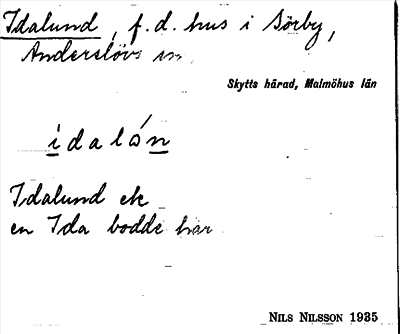 Idalund, f.d. hus i Sörby,
Anderslövs sn
Skytts härad, Malmöhus län
idalón
Idalund ek
en Ida bodde här
NILS NILSSON 1935